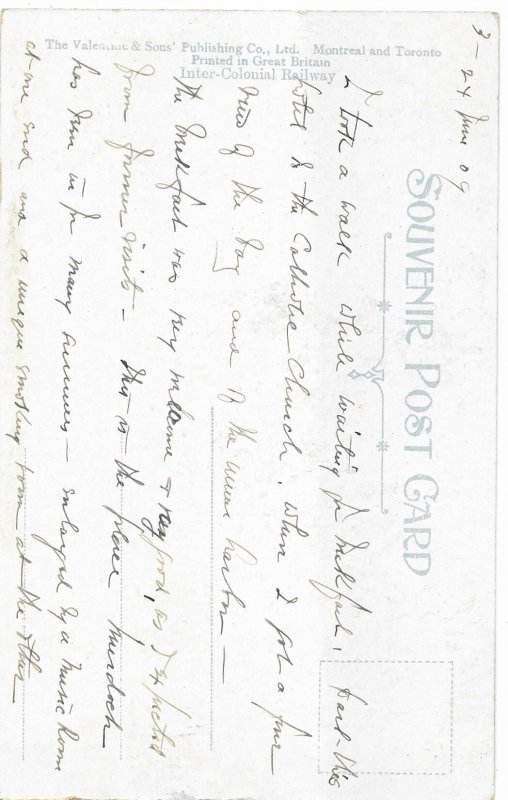 The Valentine & Sons' Publishing Co., Ltd. Montreal and Toronto
Printed in Great Britain
Inter-Colonial Railway
SOUVENIR POST CARD
3 – 24 June 09
I took a walk while waiting for breakfast, past this
hotel to the Catholic Church, where I got a fine
view of the Bay and of the inner harbor —
The breakfast was very welcome & very good, as I expected
from former visits – This is the place Murdoch
has run in for many summers – enlarged by a music room
at one end and a unique smoking room at the other